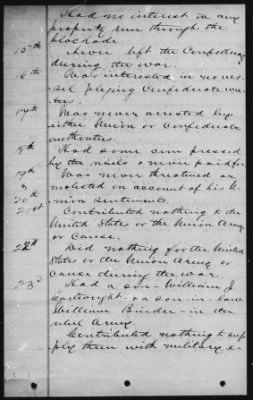 Had no interest in any
property run through the
blockade
15th Never left the Confederacy
during the war.
16th Was interested in no ves-
sel plying Confederate wa-
ters.
17th Was never arrested by
either Union or Confederate
authorities.
18th Had some corn pressed
by the rebels & never paid for.
19th Was never threatened or
molested on account of his U-
nion sentiments.
20th
21st Contributed nothing to the
United States or the Union Army
or cause.
22th Did nothing for the United
States or the Union Army or
cause during the war.
23d Had a son - William J
& a son-in-law
William Binder - in the
rebel Army.
Contributed nothing to sup-
ply them with military e-